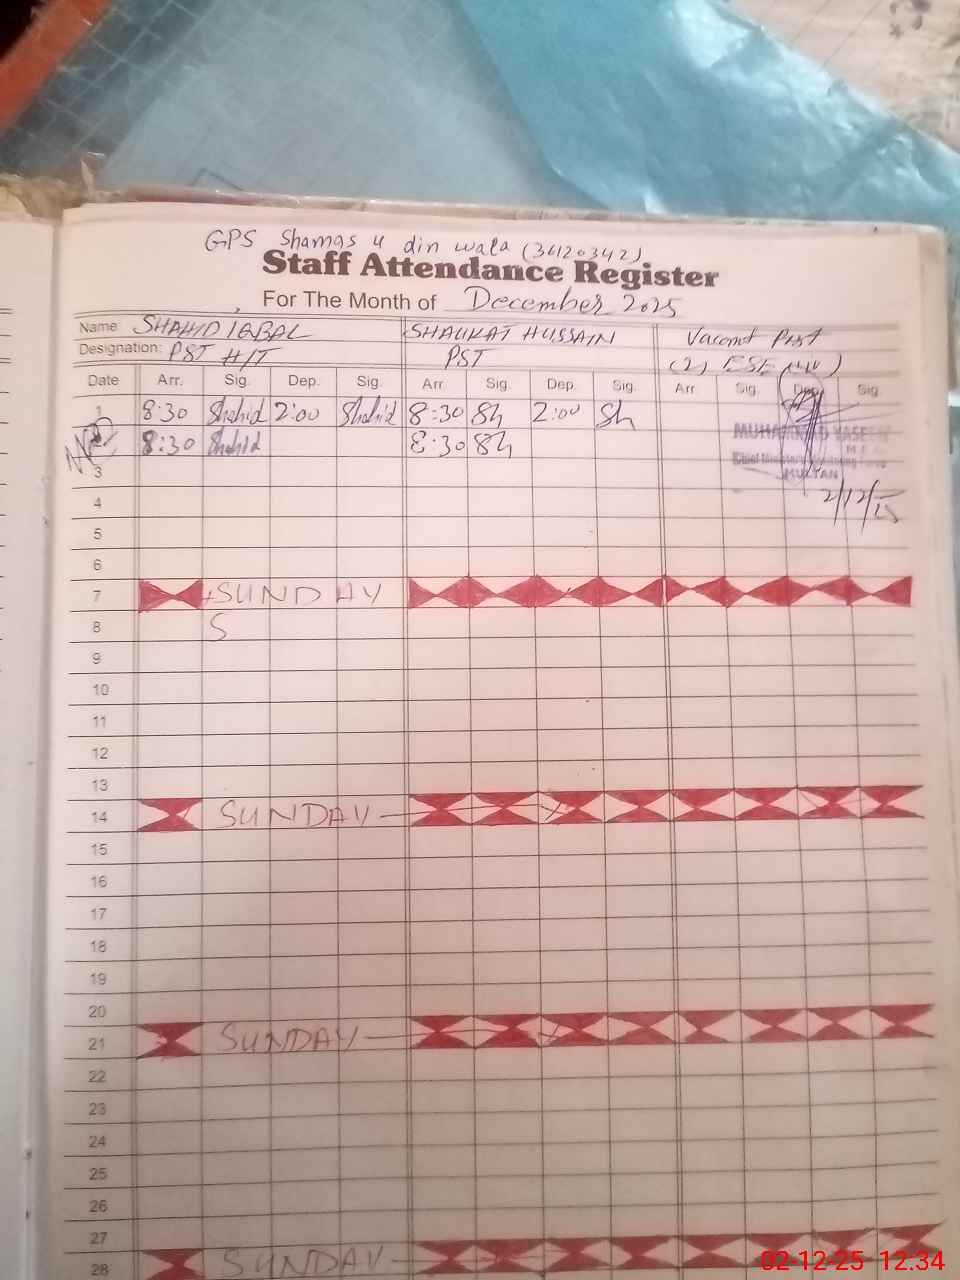 GPS Shamas u din wala (36120342)
Staff Attendance Register
For The Month of December 2025
Name SHAHID IQBAL SHAUKAT HUSSAIN Vacant Post
Designation: PST H/T PST (2) ESE
Date Arr. Sig. Dep. Sig. Arr. Sig. Dep. Sig. Arr Sig. Dep. Sig.
1 8:30 Shahid 2:00 Shahid 8:30 Sh 2:00 Sh
2 8:30 Shahid 8:30 Sh
MUHAMMAD WASEEM
Chief Minister's Monitoring Force
MULTAN
3
4 2/12/25
5
6
7 SUNDAY
8 S
9
10
11
12
13
14 SUNDAY
15
16
17
18
19
20
21 SUNDAY
22
23
24
25
26
27
28 SUNDAY
02-12-25 12:34